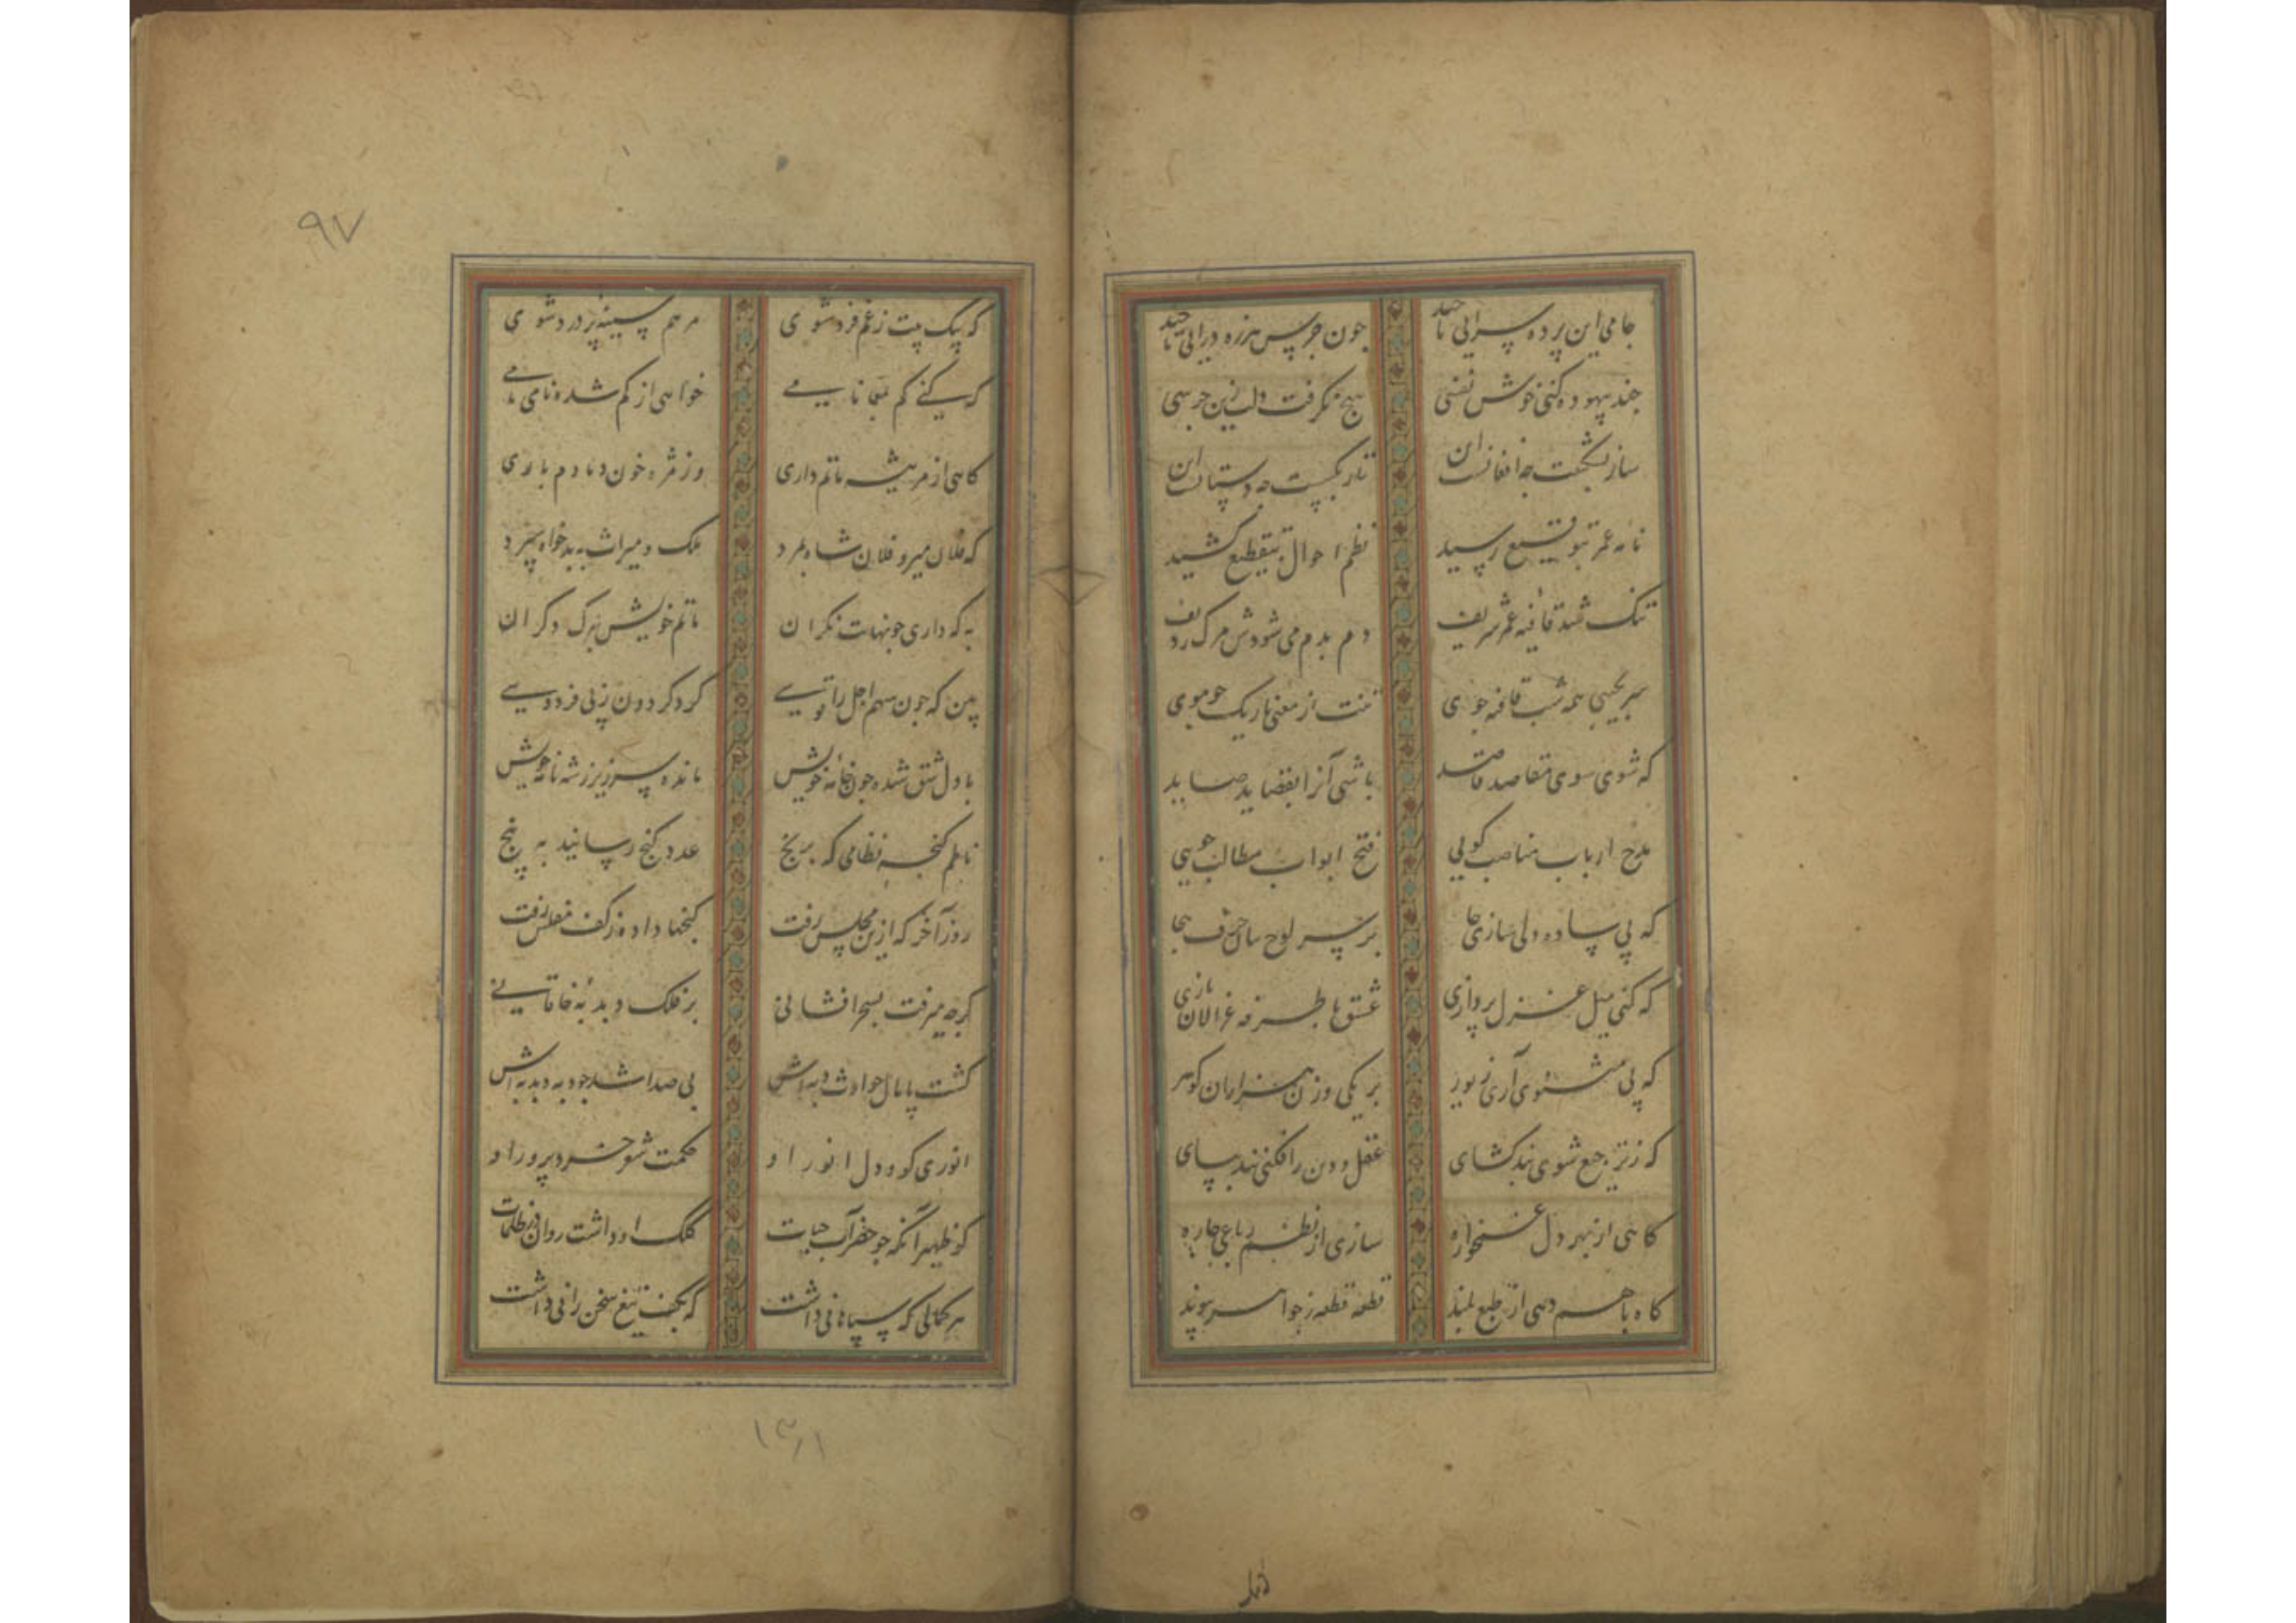 جامی این پرده سرائی تا چند
چون جرس هرزه درائی تا چند
چند بیهوده کنی خوش نفسی
هیچ نگرفت دلت زین جرسی
ساز بشکست چه افغانست این
تار بگسست چه دستانست این
نامه عمر بتوقیع رسید
نظم احوال بتقطیع کشید
تنک شد قافیه عمر شریف
دم بدم می شودش مرک ردیف
سر بجیبی همه شب قافیه جوی
تنت از معنی باریک چو موی
که شوی سوی مقاصد قاصد
باشی آنرا بقصاید صاید
مدح ارباب مناصب کویی
فتح ابواب مطالب جویی
که پی ساده دلی سازی جا
بر سر لوح بیان حرف هجا
که کنی میل غزل پردازی
عشق با طرفه غزالان بازی
که پی مثنوی آری زیور
بر یکی وزن هزاران کوهر
که ز ترجیع شوی بندکشای
عقل و دین را فکنی بند بپای
کاهی از بهر دل غمخواره
سازی از نظم رباعی چاره
کاه با هم دهی از طبع بلند
قطعه قطعه ز جواهر پیوند
که بیک بیت ز غم فرد شوی
مرهم سینه پر درد شوی
که کنی کم بمعما نامی
خواهی از کم شده نامی کامی
کاهی از مرثیه ماتم داری
وز مژه خون دمادم باری
که فلان میر و فلان شاه بمرد
ملک و میراث به بدخواه سپرد
به که داری چو نهایت نکران
ماتم خویش بمرک دکران
بین که چون سهم اجل را قوسی
کرد کردون ز پی فردوسی
با دل شق شده چون خامه خویش
مانده سر زیر ز شهنامه خویش
ناظم کنجه نظامی که برنج
عدد کنج رسانید به پنج
روز آخر که ازین مجلس رفت
کنجها داده ز کف مفلس رفت
کرچه میرفت بسحر افشانی
بر فلک دبدبه خاقانی
کشت پامال حوادث دبه اش
بی صدا شد چو دبه دبدبه اش
انوری کو و دل انور او
حکمت شعر خرد پرور او
کو ظهیر آنکه چو خضر آب حیات
کلک او داشت روان در ظلمات
هر کمالی که سپاهانی داشت
که بکف تیغ سخن رانی داشت
۹۷